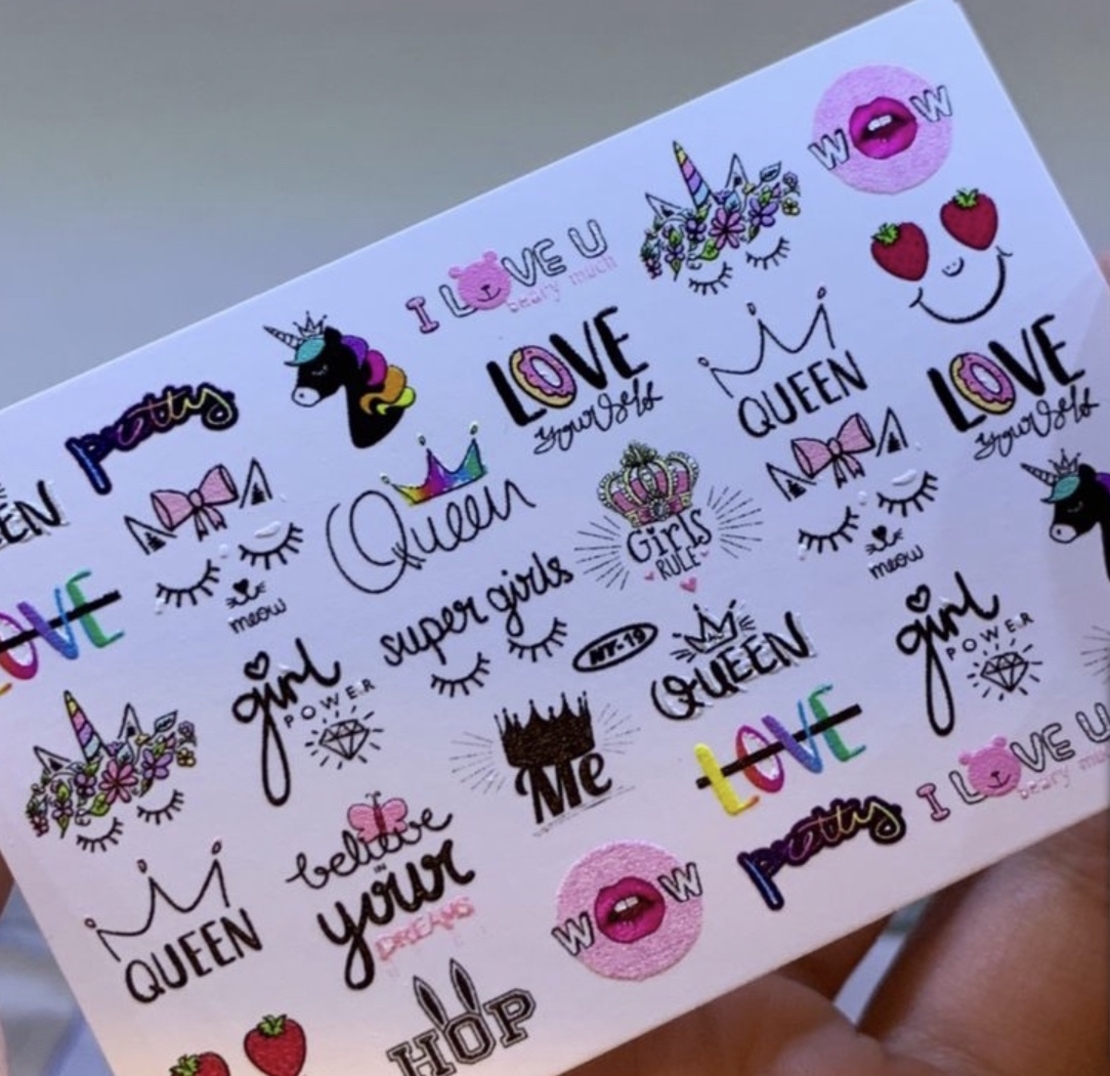 WOW
I LOVE U
beary much
pretty
LOVE
yourself
QUEEN
LOVE
yourself
EEN
meow
Queen
Girls
RULE
meow
LOVE
super girls
NY-19
QUEEN
girl
POWER
girl
POWER
Me
LOVE
I LOVE U
beary mu
pretty
believe
IN
your
DREAMS
WOW
QUEEN
HOP